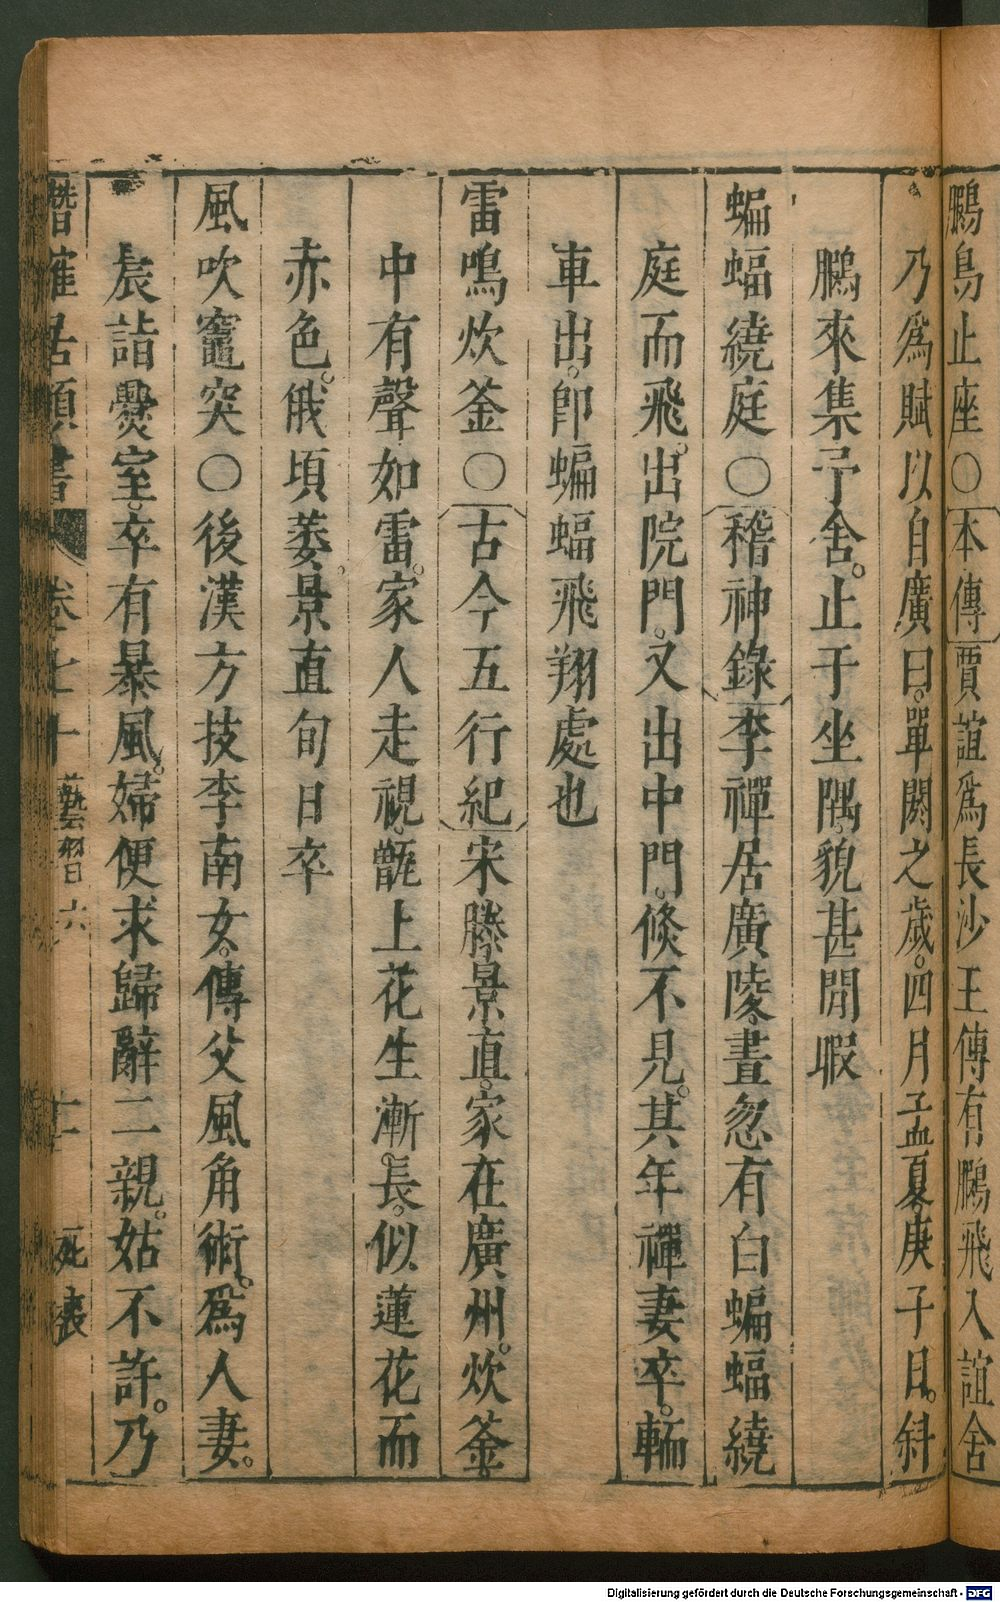 鵩鳥止座〇本傳賈誼爲長沙王傅有鵩飛入誼舍
乃爲賦以自廣曰單閼之歲四月孟夏庚子日斜
鵩來集予舍止于坐隅貌甚閒暇
蝙蝠繞庭〇稽神錄李禪居廣陵晝忽有白蝙蝠繞
庭而飛出院門又出中門倏不見其年禪妻卒輀
車出卽蝙蝠飛翔處也
雷鳴炊釜〇古今五行紀宋滕景直家在廣州炊釜
中有聲如雷家人走視甑上花生漸長似蓮花而
赤色俄頃萎景直旬日卒
風吹竈突〇後漢方技李南女傳父風角術爲人妻
晨詣爨室卒有暴風婦便求歸辭二親姑不許乃
潛確居類書 卷七十 藝習六 死喪
Digitalisierung gefördert durch die Deutsche Forschungsgemeinschaft - DFG